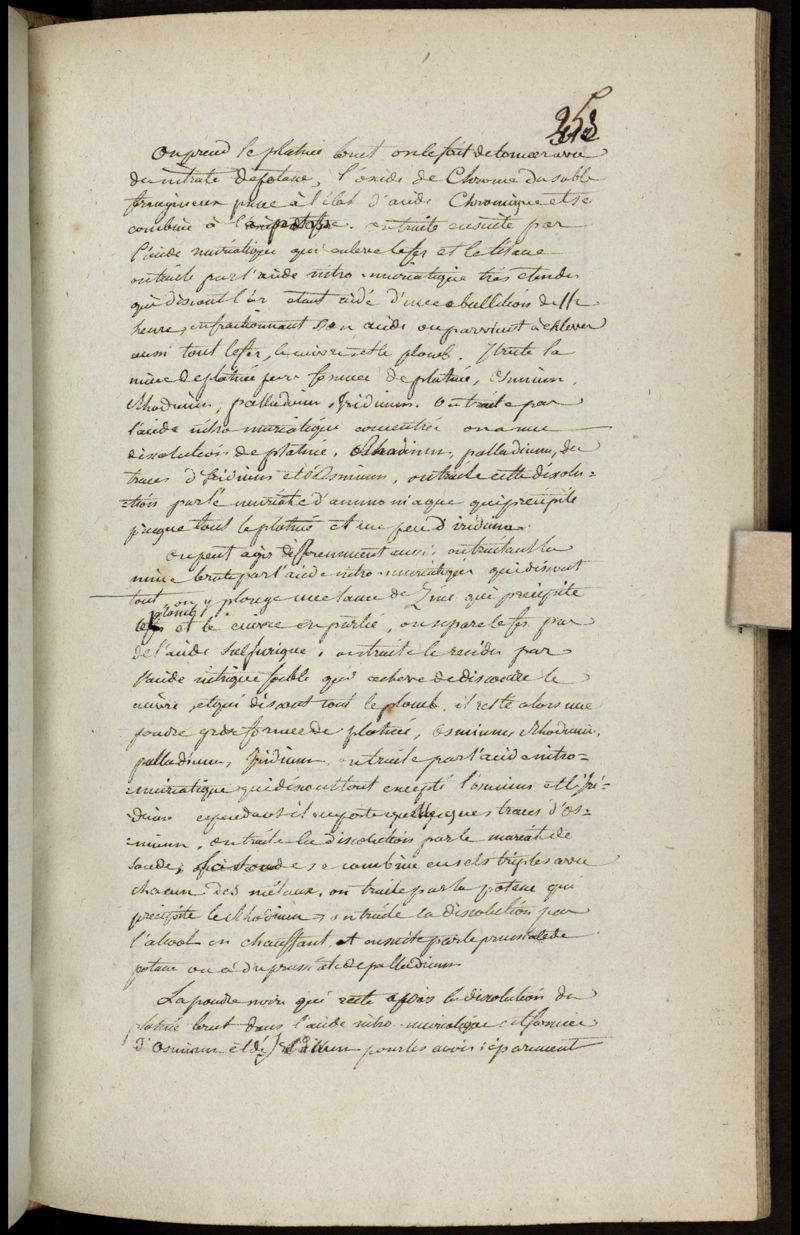 253
On prend le platine brut on le fait detonner avec
du nitrate de potasse, l'oxide de Chrome du sable
ferrugineux passe à l'état d'acide Chromique et se
combine à la potasse. on traite ensuite par
l'acide muriatique qui enleve le fer et le titane
on traite par l'acide nitro-muriatique très etendu
qui dissout l'or etant aidé d'une ebullition de 1/2
heure, en fractionnant son acide on parvient à enlever
aussi tout le fer, le cuivre et le plomb. Il reste la
mine de platine pure formée de platine, Osmium,
Rhodium, palladium, Iridium. On traite par
l'acide nitro muriatique concentré on a une
dissolution de platine, Rhodium, palladium, des
traces d'Iridium et d'Osmium, on traite cette dissolu=
=tion par le muriate d'ammoniaque qui precipite
presque tout le platine et un peu d'iridium.
On peut agir differemment aussi, en traitant la
mine brute par l'acide nitro-muriatique qui dissout
tout on y plonge une lame de Zinc qui precipite
plomb,
le fer et le cuivre en partie, on separe le fer par
de l'acide sulfurique, on traite le residu par
l'acide nitrique faible qui acheve de dissoudre le
cuivre, et qui dissout tout le plomb. il reste alors une
poudre grise formée de platine, Osmium, Rhodium,
palladium, Iridium. on traite par l'acide nitro=
=muriatique qui dissout tout excepté l'osmium et l'iri=
=dium cependant il emporte quelques traces d'os=
=mium. on traite la dissolution par le muriate de
soude, se combine en sels triples avec
chacun des métaux. on traite par la potasse qui
precipite le Rhodium, on traite la dissolution par
l'alcool en chauffant, et ensuite par le prussiate de
potasse on a du prussiate de palladium
La poudre noire qui reste après la dissolution du
platine brut dans l'acide nitro-muriatique est formée
d'Osmium et d'Iridium pour les avoir séparément